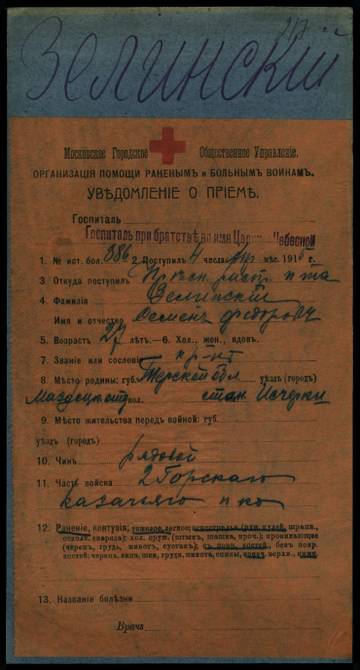 Зелинскій
Московское Городское Общественное Управленіе.
ОРГАНИЗАЦІЯ ПОМОЩИ РАНЕНЫМЪ и БОЛЬНЫМЪ ВОИНАМЪ.
УВѢДОМЛЕНІЕ О ПРІЕМѢ.
Госпиталь
Госпиталь при братствѣ во имя Царицы Небесной
1. № ист. бол. 886 2. Поступилъ 4 числа мѣс. 1915 г.
3 Откуда поступилъ
4 Фамилія Зелинскій
Имя и отчество Семенъ Федоровъ
5. Возрастъ 27 лѣтъ. 6. Хол., жен., вдов.
7. Званіе или сословіе кр-нъ
8. Мѣсто родины: губ. Терской обл уѣздъ (городъ)
вол. стан. Ищерки
9. Мѣсто жительства передъ войной: губ.
уѣздъ (городъ)
10. Чинъ рядовой
11. Часть войска 2 Горскаго
казачьяго п-ка
12. Раненіе, контузія, тяжелое, легкое,
оскол. снаряда); хол. оруж. (штыкъ, шашка, проч.); проникающее
(черепъ, грудь, животъ, суставъ); съ повр. костей, безъ повр.
костей; черепа, лица, шеи, груди, живота, спины, конеч. верхн., нижн.
13. Названіе болѣзни
Врачъ